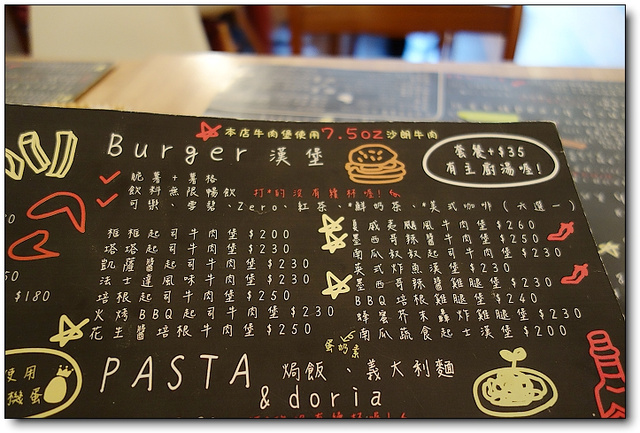 本店牛肉堡使用7.5oz沙朗牛肉
Burger 漢堡
套餐+$35
有主廚湯喔!
脆薯+薯格
飲料無限暢飲 打*的沒有續杯喔!
可樂、雪碧、Zero、紅茶、*鮮奶茶、*美式咖啡(六選一)
框框起司牛肉堡$200
塔塔起司牛肉堡$230
凱薩醬起司牛肉堡$230
法士達風味牛肉堡$230
培根起司牛肉堡$250
火烤BBQ起司牛肉堡$230
花生醬培根牛肉堡$250
夏威夷颶風牛肉堡$260
墨西哥辣醬牛肉堡$250
南瓜起司牛肉堡$230
英式炸魚漢堡$230
墨西哥辣醬雞腿堡$230
BBQ培根雞腿堡$240
蜂蜜芥末轟炸雞腿堡$230
蛋奶素
南瓜蔬食起士漢堡$200
50
$180
使用
機蛋
PASTA 焗飯、義大利麵
& doria